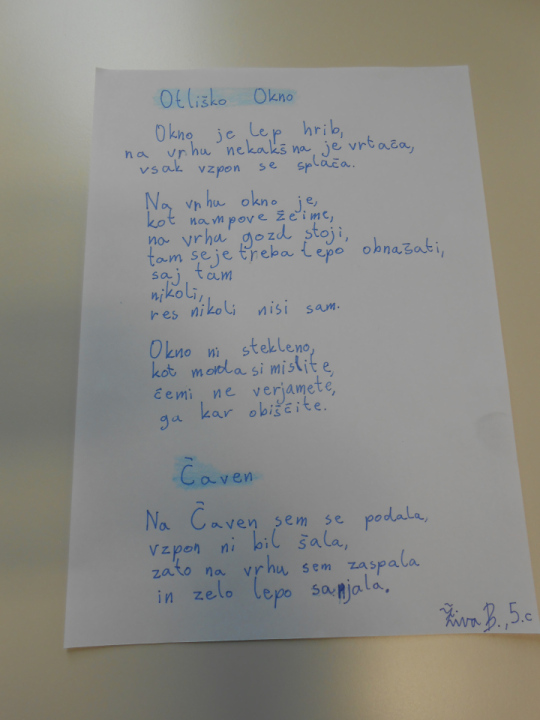 Otliško Okno
Okno je lep hrib,
na vrhu nekakšna je vrtača,
vsak vzpon se splača.
Na vrhu okno je,
kot nam pove že ime,
na vrhu gozd stoji,
tam se je treba lepo obnašati,
saj tam
nikoli,
res nikoli nisi sam.
Okno ni stekleno,
kot morda si mislite,
če mi ne verjamete,
ga kar obiščite.
Čaven
Na Čaven sem se podala,
vzpon ni bil šala,
zato na vrhu sem zaspala
in zelo lepo sanjala.
Živa B., 5.c